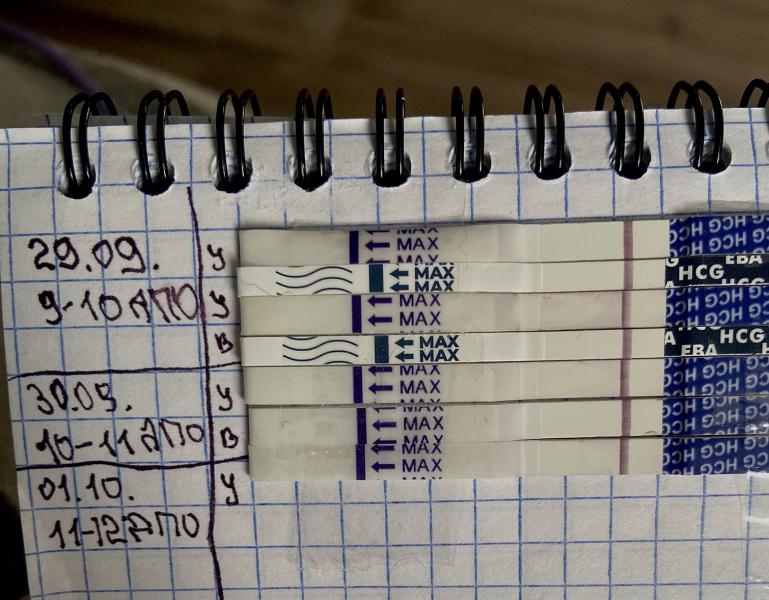 29.09.
9-10 ДПО
У
У
В
30.09.
10-11 ДПО
У
В
01.10.
11-12 ДПО
У
MAX
MAX
MAX
MAX
MAX
MAX
MAX
MAX
MAX
MAX
MAX
MAX
MAX
MAX
EBA
HCG
HCG
EBA
HCG HCG HCG